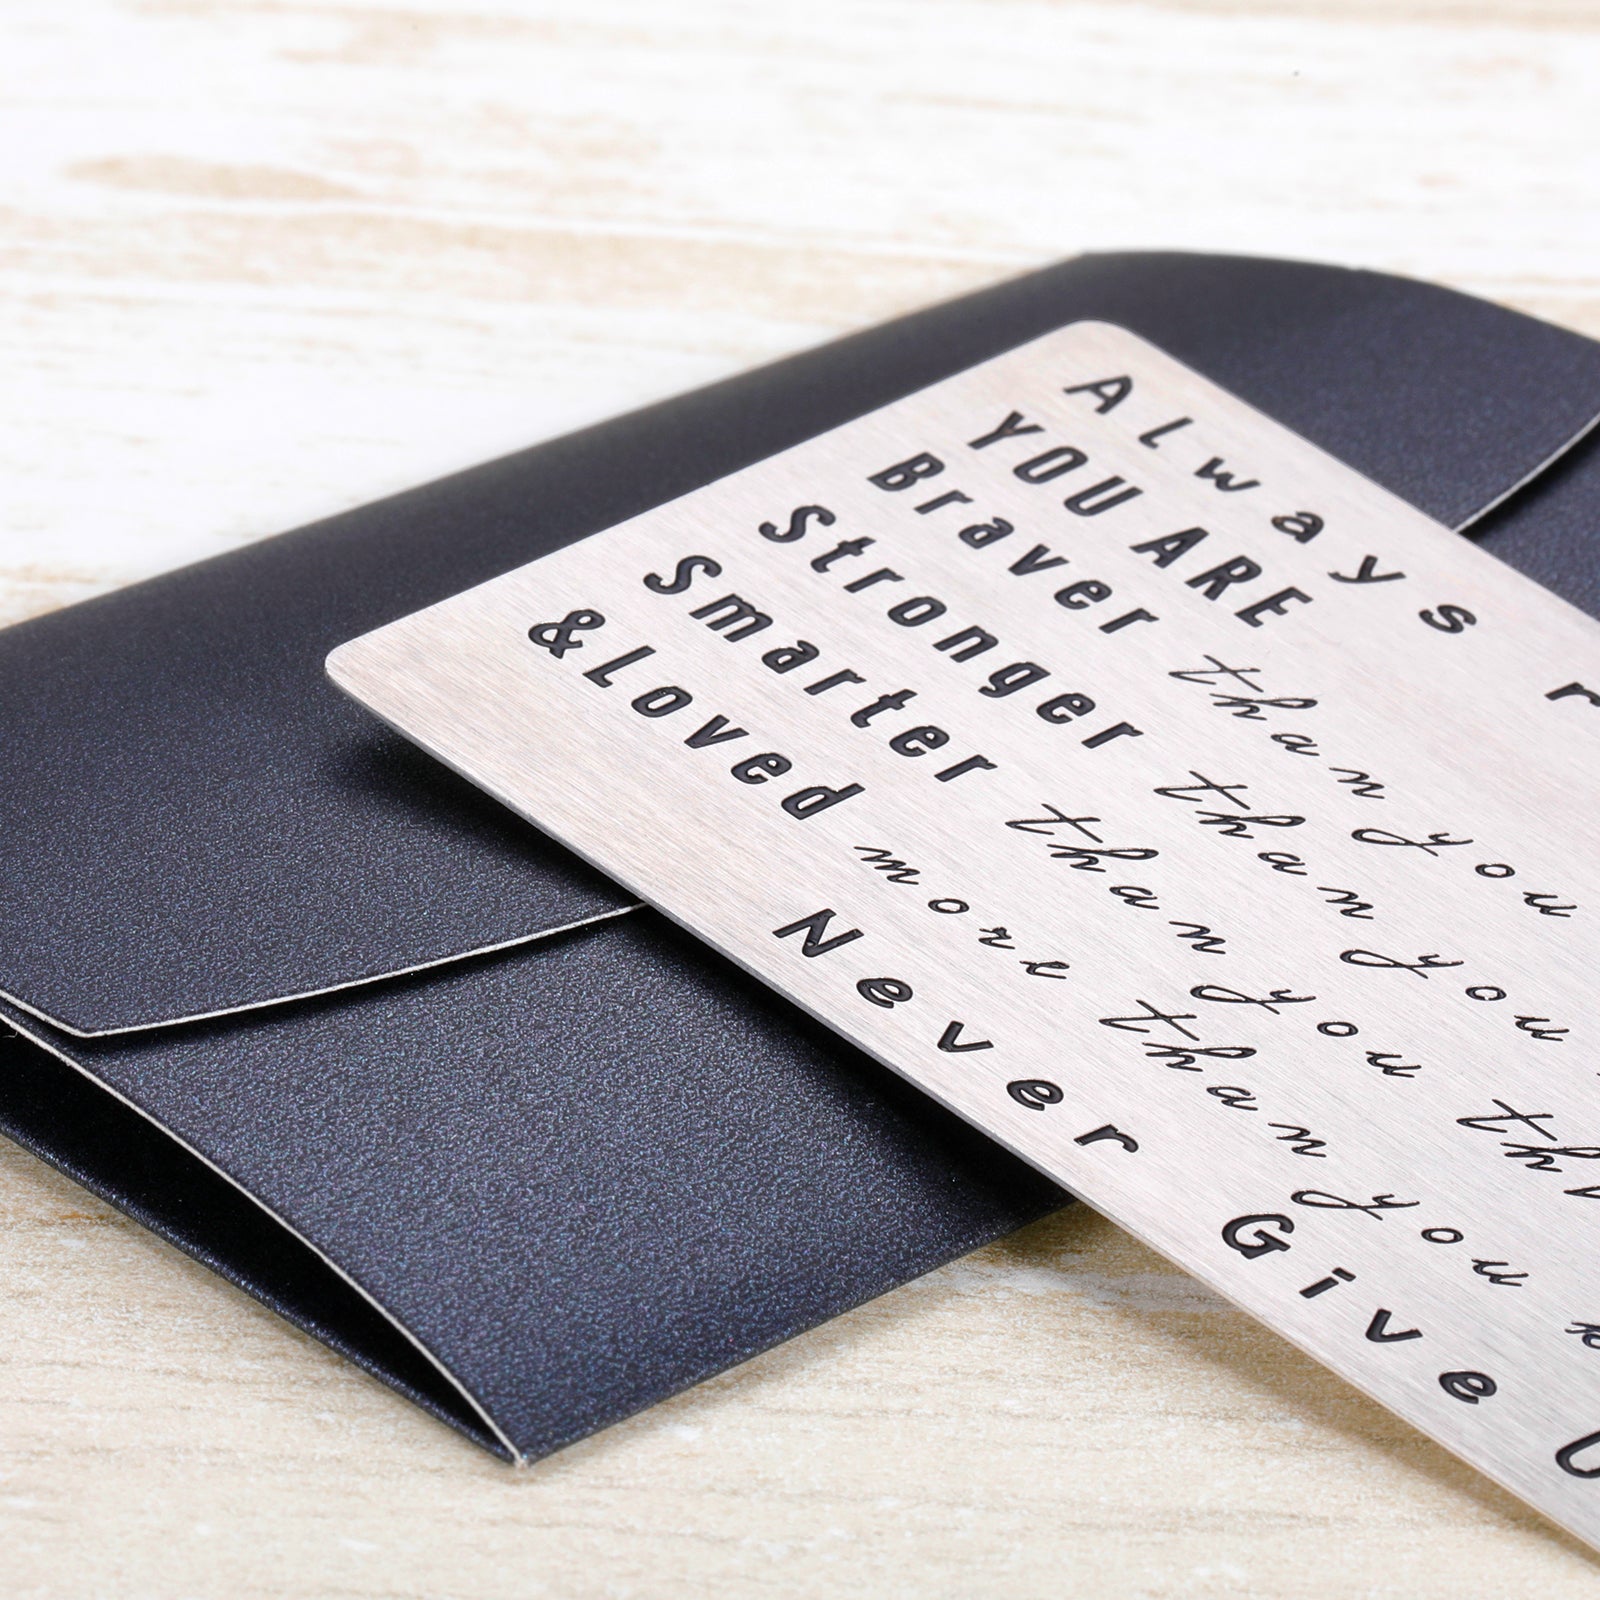 Always
YOU ARE
Braver than you
Stronger than you
Smarter than you
&Loved more than you
Never Give